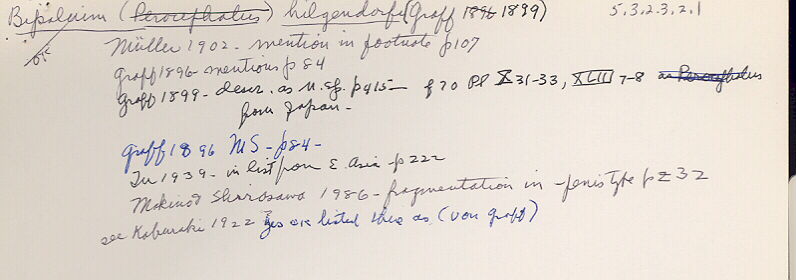 Bipalium (Perocephalus) hilgendorfi (Graff 1896 1899) 5.3.2.3.2.1
OK
Müller 1902 - mention in footnote p107
Graff 1896 - mentions p 84
Graff 1899 - descr. as n. sp. p415 - f 70 Pl X 31-33, XLIII 7-8 as Perocephalus
from Japan -
Graff 1896 MS - p84 -
Tu 1939 - in list from E. Asia - p 222
Makino & Shirasawa 1986 - fragmentation in - penis type p 232
see Kaburaki 1922 yes is listed there as (von Graff)